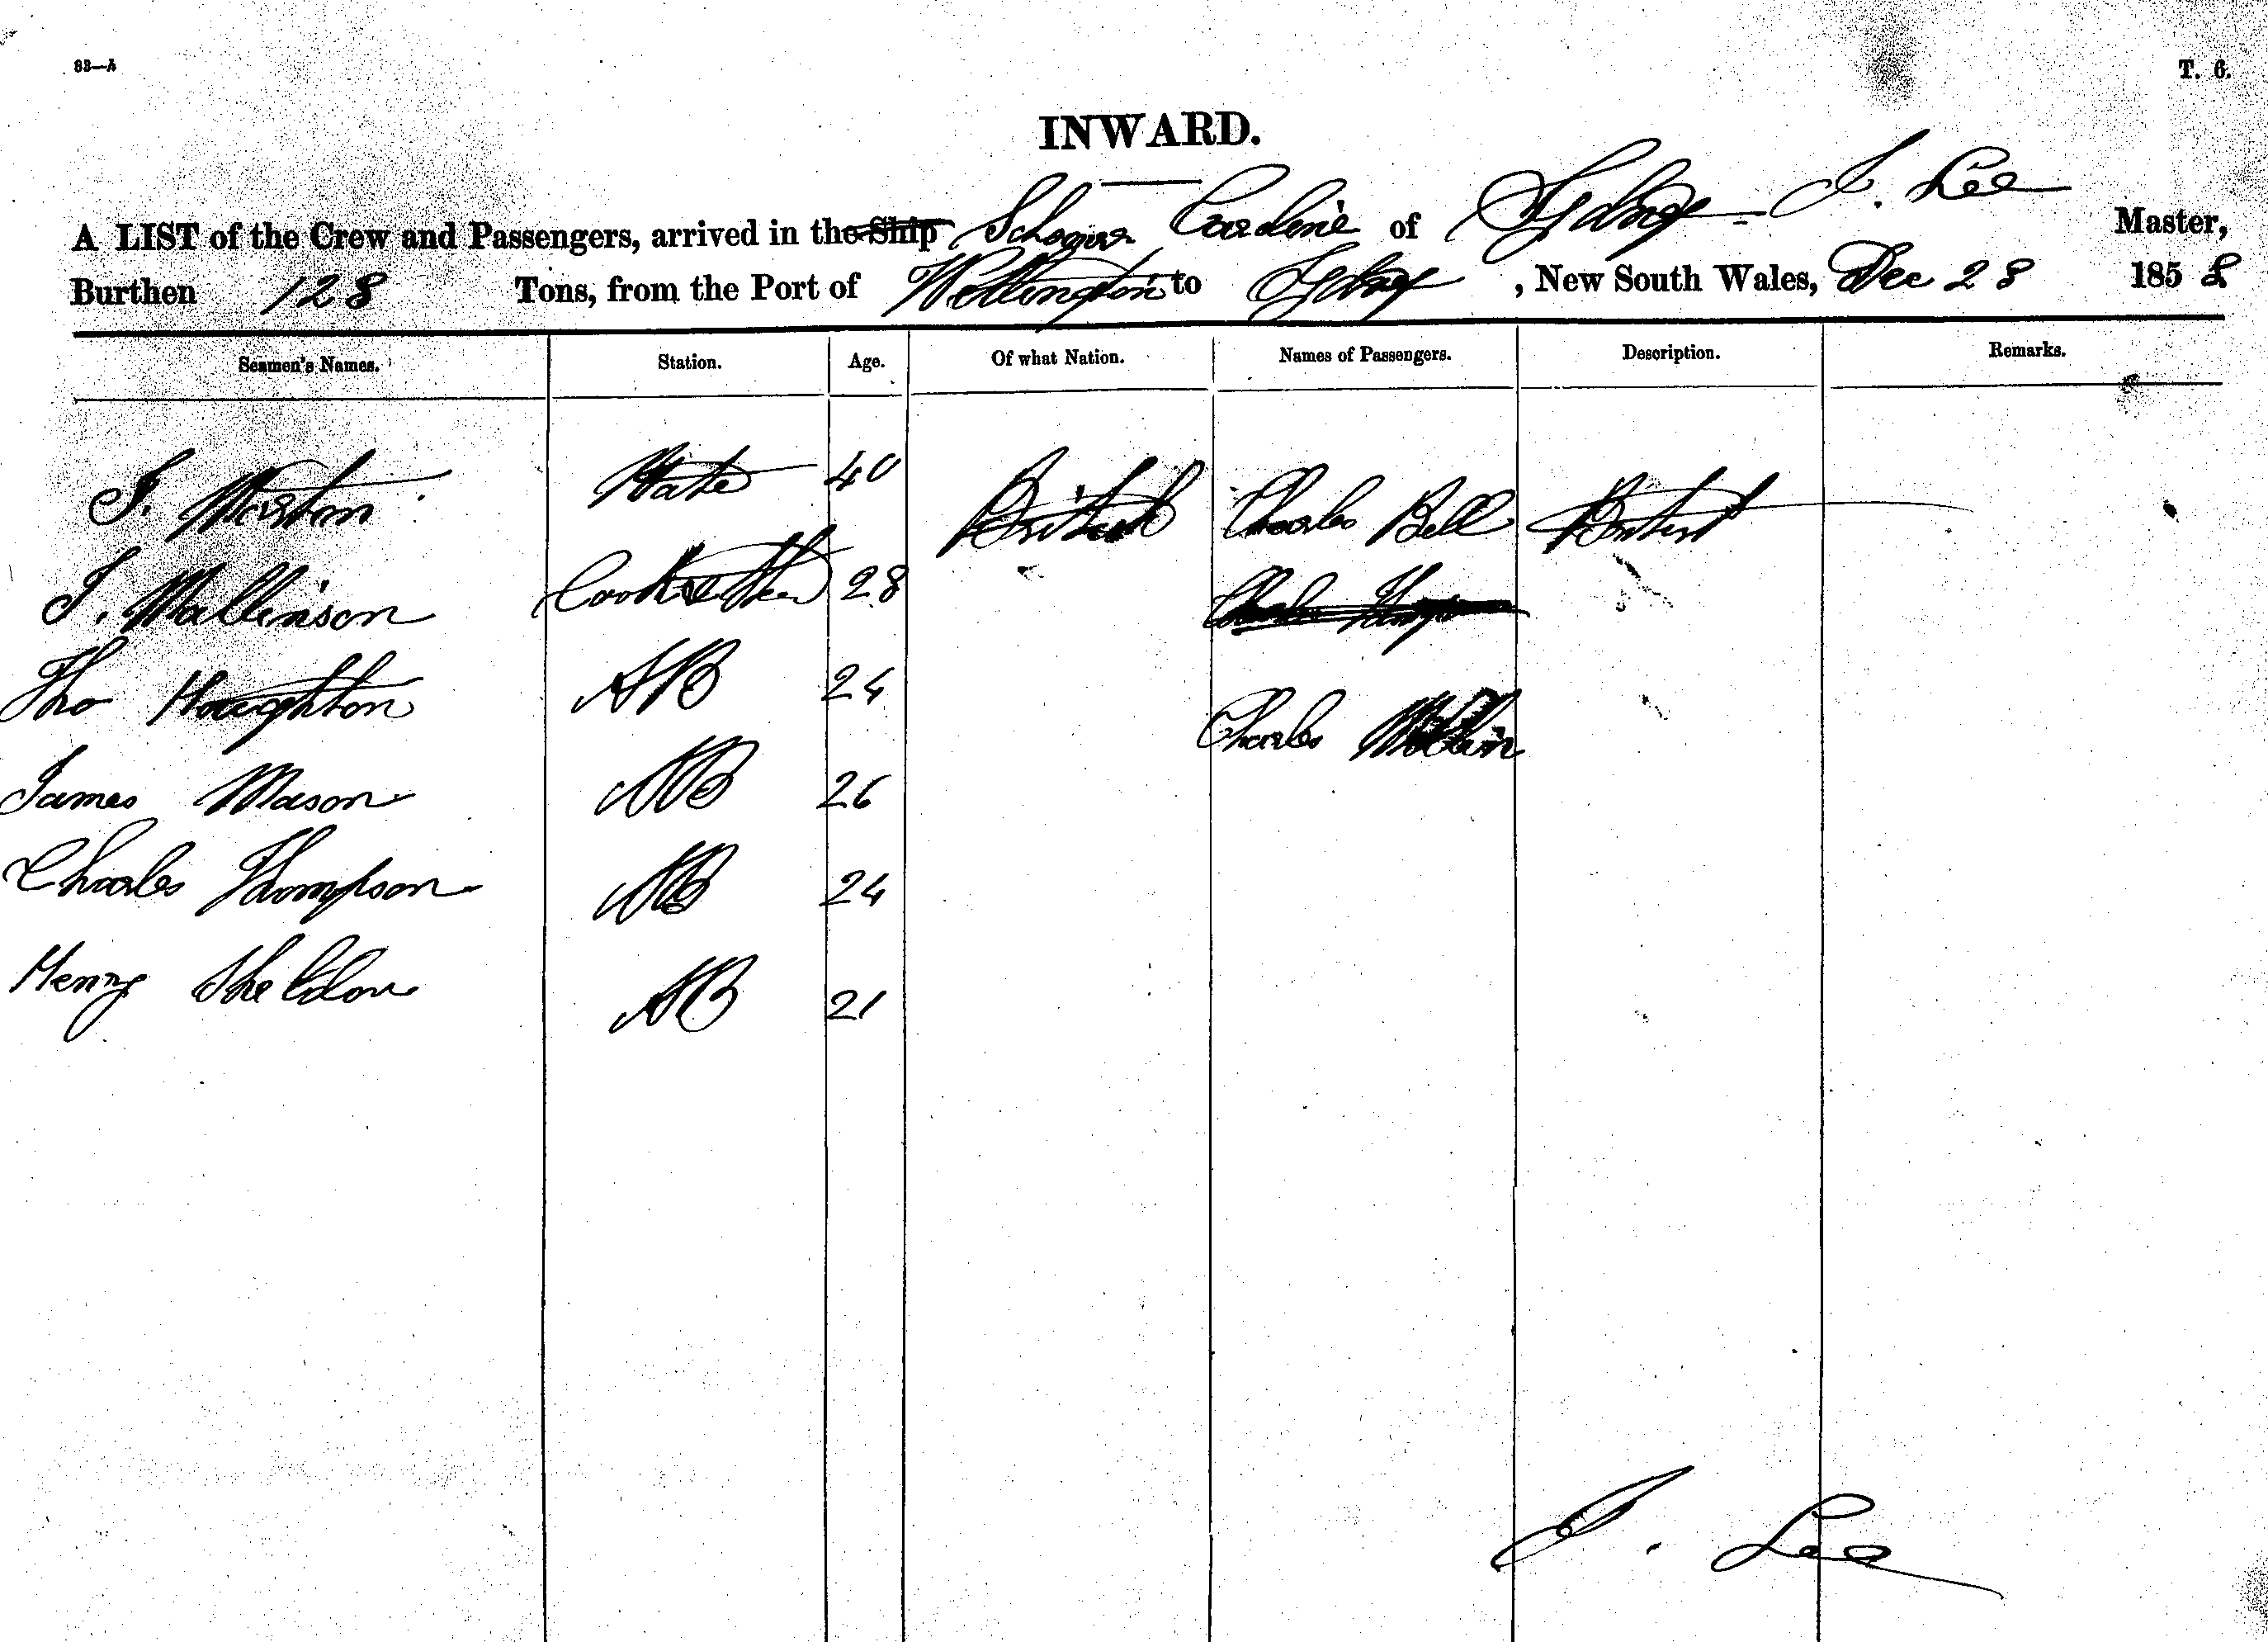 83—A
T. 6.
INWARD.
A LIST of the Crew and Passengers, arrived in the Ship Schooner Caroline of Sydney - J. Lee Master,
Burthen 128 Tons, from the Port of Wellington to Sydney, New South Wales, Dec 28 1858
Seamen's Names. Station. Age. Of what Nation. Names of Passengers. Description. Remarks.
J. Marston Mate 40 British Charles Bell
J. Mallinson Cook & Stew 28 Charles
Tho Houghton AB 24 Charles
James Mason AB 26
Charles Thompson AB 24
Henry Sheldon AB 21
J. Lee